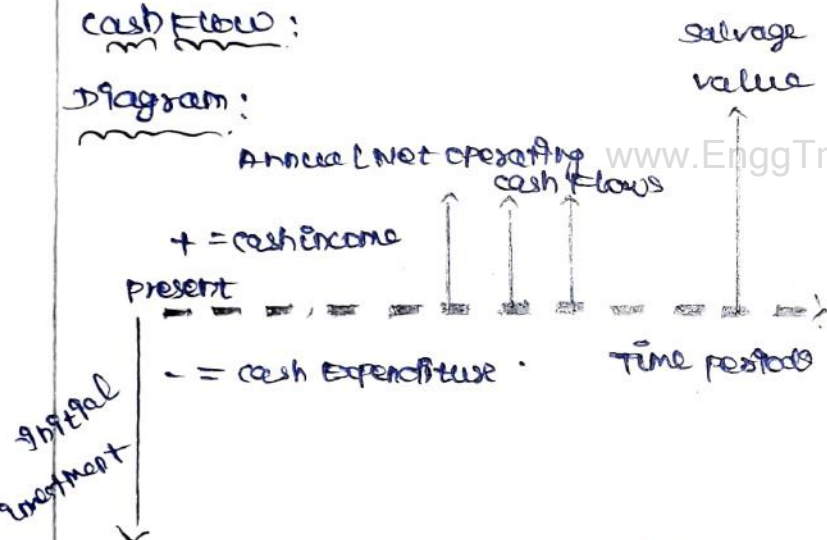 Cash Flow:
Diagram:
Salvage
value
Annual Net operating
cash Flows
www.EnggTr
+ = cash income
Present
- = cash Expenditure.
Time periods
Initial
investment